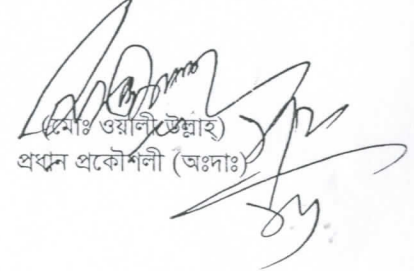 (মোঃ ওয়ালী উল্লাহ্)
প্রধান প্রকৌশলী (অঃদাঃ)